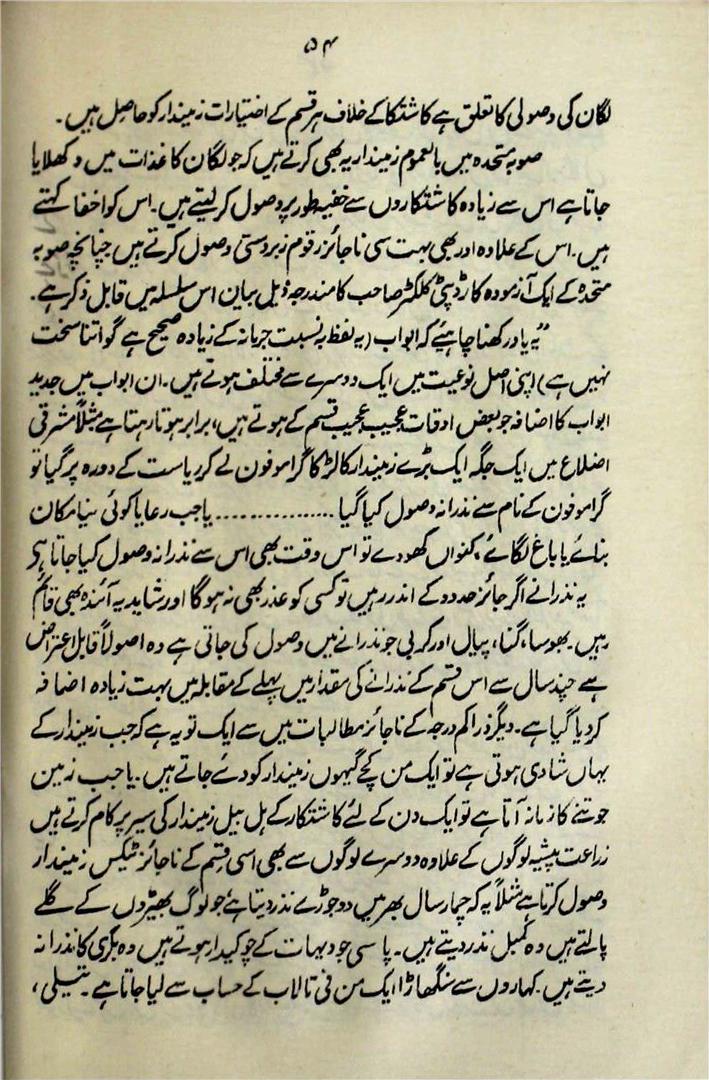 ۵۴
لگان کی وصولی کا تعلق ہے کاشتکار کے خلاف ہر قسم کے اختیارات زمیندار کو حاصل ہیں۔
صوبہ متحدہ میں بالعموم زمیندار یہ بھی کرتے ہیں کہ جو لگان کاغذات میں دکھلایا
جاتا ہے اس سے زیادہ کاشتکاروں سے خفیہ طور پر وصول کر لیتے ہیں۔ اس کو اخفا کہتے
ہیں۔ اس کے علاوہ اور بھی بہت سی ناجائز رقوم زبردستی وصول کرتے ہیں چنانچہ صوبہ
متحدہ کے ایک آزمودہ کار ڈپٹی کلکٹر صاحب کا مندرجہ ذیل بیان اس سلسلہ میں قابل ذکر ہے۔
"یہ یاد رکھنا چاہیئے کہ ابواب (یہ لفظ بہ نسبت جرمانہ کے زیادہ صحیح ہے گو اتنا سخت
نہیں ہے) اپنی اصل نوعیت میں ایک دوسرے سے مختلف ہوتے ہیں۔ ان ابواب میں جدید
ابواب کا اضافہ جو بعض اوقات عجیب عجیب قسم کے ہوتے ہیں، برابر ہوتا رہتا ہے مثلاً مشرقی
اضلاع میں ایک جگہ ایک بڑے زمیندار کا لڑکا گراموفون لے کر ریاست کے دورہ پر گیا تو
گراموفون کے نام سے نذرانہ وصول کیا گیا .................. یا جب رعایا کوئی نیا مکان
بنائے یا باغ لگائے، کنواں کھودے تو اس وقت بھی اس سے نذرانہ وصول کیا جاتا ہے
یہ نذرانے اگر جائز حدود کے اندر رہیں تو کسی کو عذر بھی نہ ہوگا اور شاید یہ آئندہ بھی قائم
رہیں۔ بھوسا، گنا، پیال اور کربی جو نذرانے میں وصول کی جاتی ہے وہ اصولاً قابل اعتراض
ہے چند سال سے اس قسم کے نذرانے کی مقدار میں پہلے کے مقابلہ میں بہت زیادہ اضافہ
کر دیا گیا ہے۔ دیگر ذرا کم درجہ کے ناجائز مطالبات میں سے ایک تو یہ ہے کہ جب زمیندار کے
یہاں شادی ہوتی ہے تو ایک من کچے گیہوں زمیندار کو دئے جاتے ہیں۔ یا جب زمین
جوتنے کا زمانہ آتا ہے تو ایک دن کے لئے کاشتکار کے ہل بیل زمیندار کی سیر پر کام کرتے ہیں
زراعت پیشہ لوگوں کے علاوہ دوسرے لوگوں سے بھی اسی قسم کے ناجائز ٹیکس زمیندار
وصول کرتا ہے مثلاً یہ کہ چمار سال بھر میں دو جوڑے نذر دیتا ہے جو لوگ بھیڑوں کے گلے
پالتے ہیں وہ کمبل نذر دیتے ہیں۔ پاسی جو دیہات کے چوکیدار ہوتے ہیں وہ بکری کا نذرانہ
دیتے ہیں۔ کہاروں سے سنگھاڑا ایک من فی تالاب کے حساب سے لیا جاتا ہے۔ تیلی،